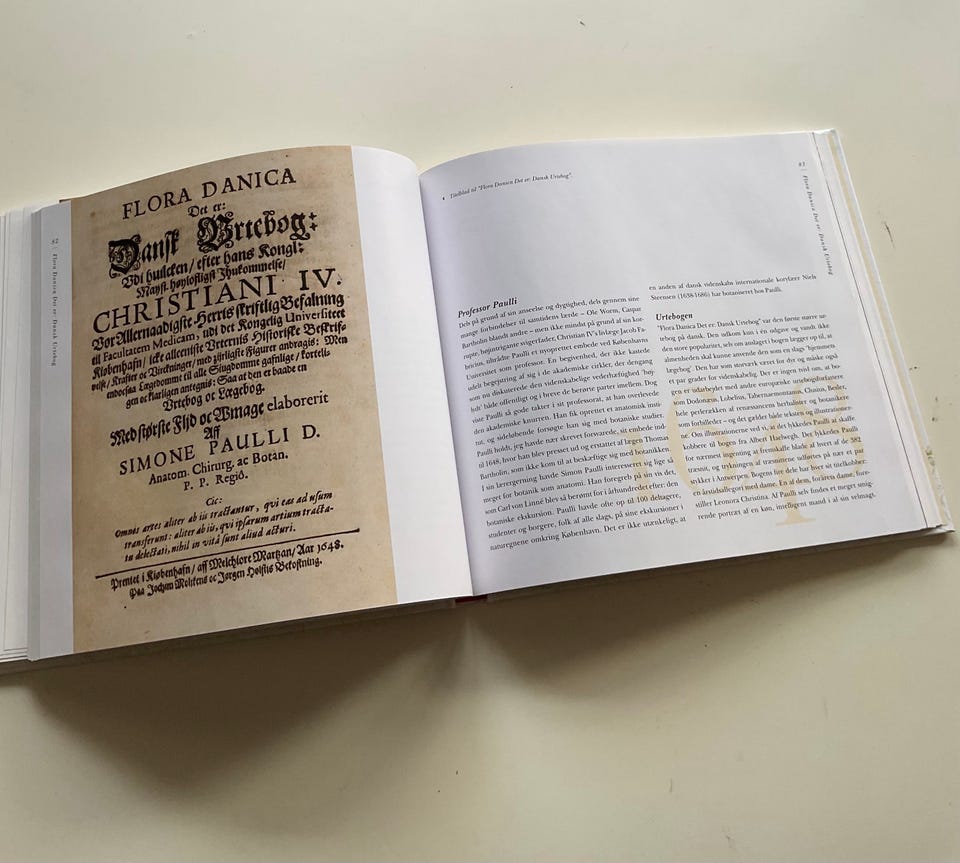 82 | Flora Danica Det er: Dansk Urtebog
FLORA DANICA
Det er:
Dansk Urtebog:
Udi huilcken / efter hans Kongl:
Mayst. høyloflligst Ihukommelse /
CHRISTIANI IV.
Vor Allernaadigste Herris skrifftlig Befalning
til Facultatem Medicam, udi det Kongelig Universitetet
Kiøbenhafn / icke alleeniste Urternis Historiske Beskrif-
velse / Kraffter oc Virckninger / med zijrligste Figurer andragis: Men
endocsaa Lægedomme til alle Siugdomme gafnlige / kortelig-
gen oc klarligen antegnis: Saa at den er baade en
Urtebog oc Lægebog.
Med største Flijd oc Umage elaborerit
Aff
SIMONE PAULLI D.
Anatom. Chirurg. ac Botan.
P. P. Regiô.
Cic:
Omnes artes aliter ab iis tractantur, qui eas ad usum
transferunt: aliter ab iis, qui ipsarum artium tracta-
tu delectati, nihil in vitâ sunt aliud acturi.
Prentet i Kiøbenhafn / aff Melchiore Martzan / Aar 1648.
Paa Jochim Moltkens oc Jørgen Holstis Bekostning.
Titelblad til "Flora Danica Det er: Dansk Urtebog".
83 | Flora Danica Det er: Dansk Urtebog
Professor Paulli
Dels på grund af sin anseelse og dygtighed, dels gennem sine
mange forbindelser til samtidens lærde – Ole Worm, Caspar
Bartholin blandt andre – men ikke mindst på grund af sin kor-
rupte, højintrigante svigerfader, Christian IV's livlæge Jacob Fa-
bricius, tilbrådte Paulli et nyoprettet embede ved Københavns
Universitet som professor. En begivenhed, der ikke kastede
udelt begejstring af sig i de akademiske cirkler, der dengang
som nu diskuterede den videnskabelige vederhæftighed 'høj-
lydt' både offentligt og i breve de berørte parter imellem. Dog
viste Paulli så gode takter i sit professorat, at han overlevede
den akademiske knurren. Han fik oprettet et anatomisk insti-
tut, og sideløbende forsøgte han sig med botaniske studier.
Paulli holdt, jeg havde nær skrevet forwarede, sit embede ind-
til 1648, hvor han blev presset ud og erstattet af lægen Thomas
Bartholin, som ikke kom til at beskæftige sig med botanikken.
I sin lærergerning havde Simon Paulli interesseret sig lige så
meget for botanik som anatomi. Han foregreb på sin vis det,
som Carl von Linné blev så berømt for i århundredet efter: den
botaniske ekskursion. Paulli havde ofte op til 100 deltagere,
studenter og borgere, folk af alle slags, på sine ekskursioner i
naturegnene omkring København. Det er ikke utænkeligt, at
en anden af dansk videnskabs internationale koryfæer Niels
Steensen (1638-1686) har botaniseret hos Paulli.
Urtebogen
"Flora Danica Det er: Dansk Urtebog" var den første større ur-
tebog på dansk. Den udkom kun i én udgave og vandt ikke
den store popularitet, selv om anslaget i bogen lægger op til, at
almenheden skal kunne anvende den som en slags 'hjemmets
lægebog'. Den har som storværk været for dyr og måske også
et par grader for videnskabelig. Der er ingen tvivl om, at bo-
gen er udarbejdet med andre europæiske urtebogsforfattere
som Dodonæus, Lobelius, Tabernaemontamus, Clusius, Besler,
hele perlerækken af renæssancens herbalister og botanikere
som forbilleder – og det gælder både teksten og illustrationer-
ne. Om illustrationerne ved vi, at det lykkedes Paulli at skaffe
kobbere til bogen fra Albert Haelwegh. Det lykkedes Paulli
for nærmest ingenting at fremskaffe blade af hvert af de 382
træsnit, og trykningen af træsnittene udførtes på nær et par
stykker i Antwerpen. Bogens fire dele har hver sit titelkobber:
en årstidsallegori med dame. En af dem, forårets dame, fore-
stiller Leonora Christina. Af Paulli selv findes et meget smig-
rende portræt af en køn, intelligent mand i al sin velmagt.